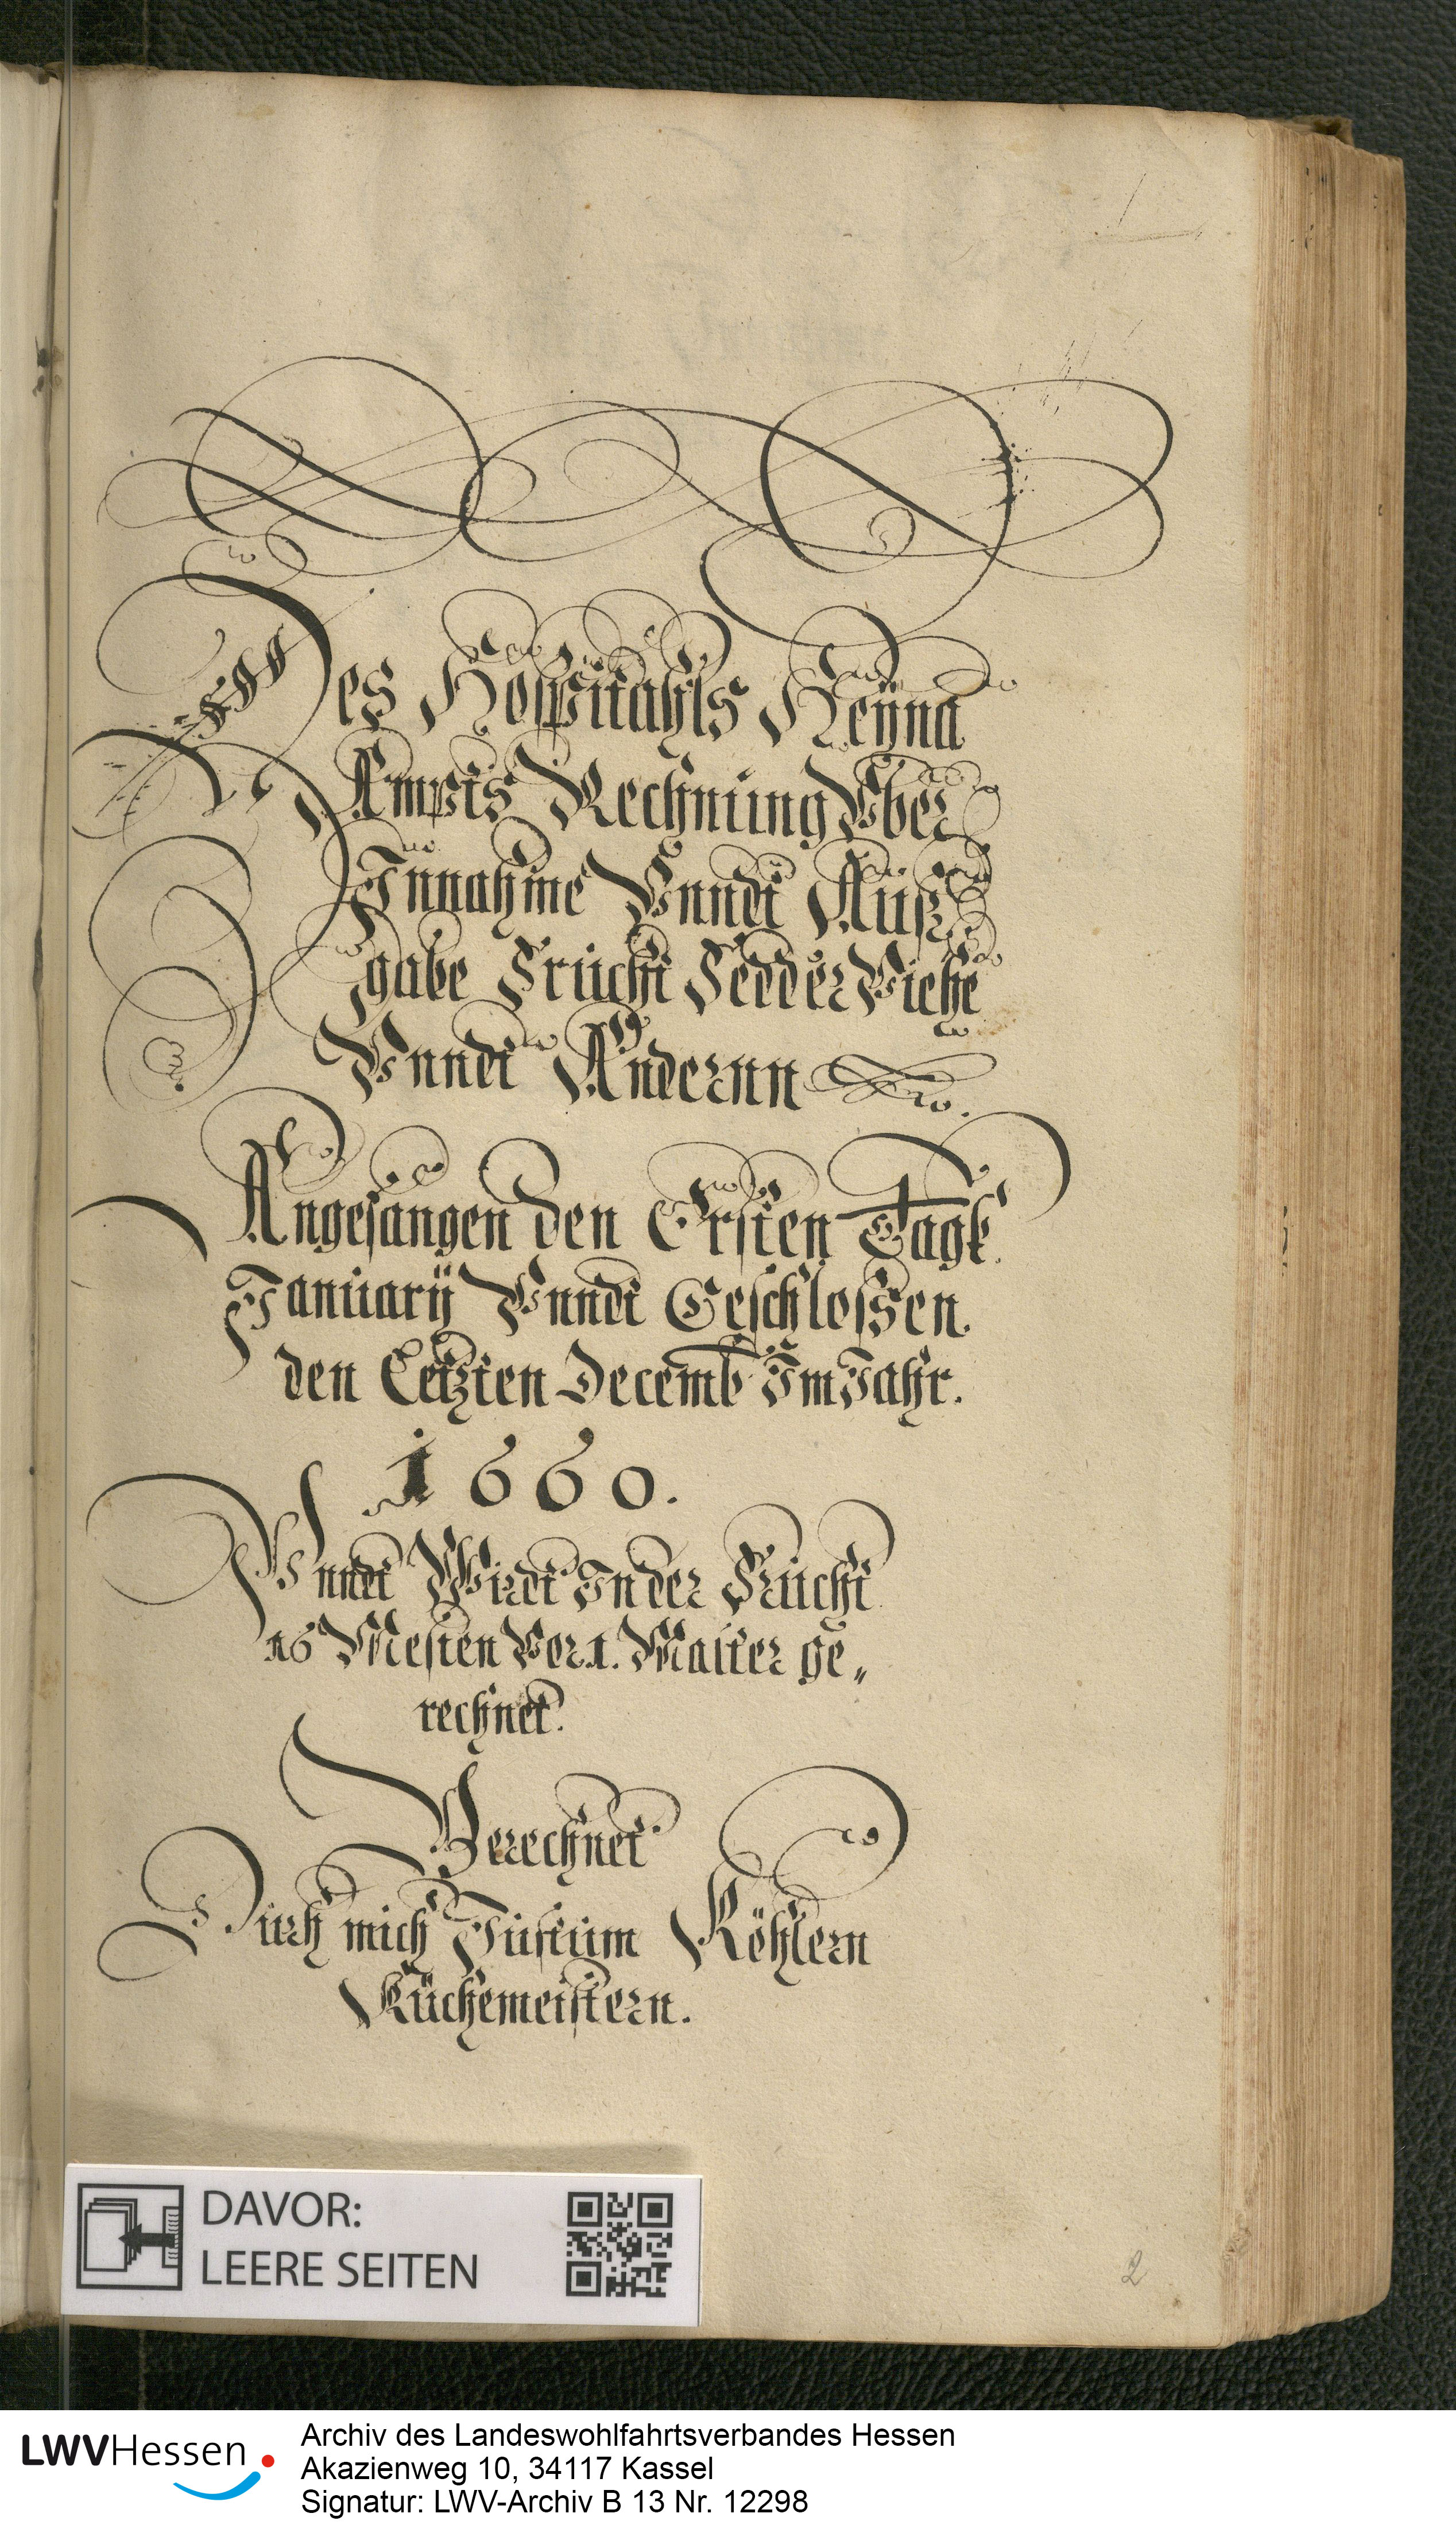 Des Hospitahls Heÿna
Ampts Rechnüng Vber
Innahme Vnndt Auß
gabe Frücht Fedder Viehe
Vnndt Andernn
Angefangen den Ersten Tagk
Januarÿ Vnndt Geschlossen.
den Letzten Decemb Im Jahr.
1660.
Vnndt Wirdt In der Frücht
16 Mesten Vor .1. Malter ge„
rechnet.
Verechnet
Durch mich Justum Köhlern
Küchemeistern.
DAVOR:
LEERE SEITEN
2
LWVHessen
Archiv des Landeswohlfahrtsverbandes Hessen
Akazienweg 10, 34117 Kassel
Signatur: LWV-Archiv B 13 Nr. 12298